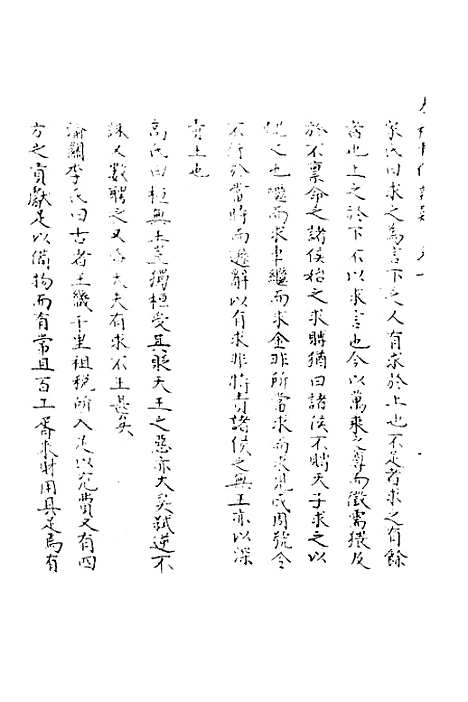 家氏曰求之為言下之人有求於上也不足者求之有餘
者也上之於下不以求言也今以萬乘之尊而徵需猥及
於不稟命之諸侯始之求賻猶曰諸侯不賻天子求之以
也繼而求車繼而求金非所當求而求見民周號令
不行於當時而遜辭以有求非特責諸侯之無王亦以深
責上也
高氏曰桓無王莫獨桓爰且疑天王之惡亦大矣弒逆不
誅又數聘之又大夫有求不王甚矣
李氏曰古者王畿千里租稅所入足以充費又有四
方之貢獻足以備物而有常且百工胥求財用具足焉有